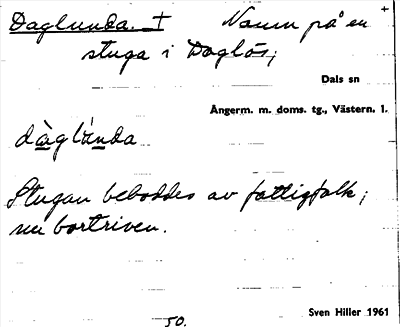 Daglunda. † Namn på en
stuga i Daglös;
Dals sn
Ångerm. m. doms. tg., Västern. 1.
dàglúnda
Stugan beboddes av fattigfolk;
nu bortriven.
Sven Hiller 1961
50.